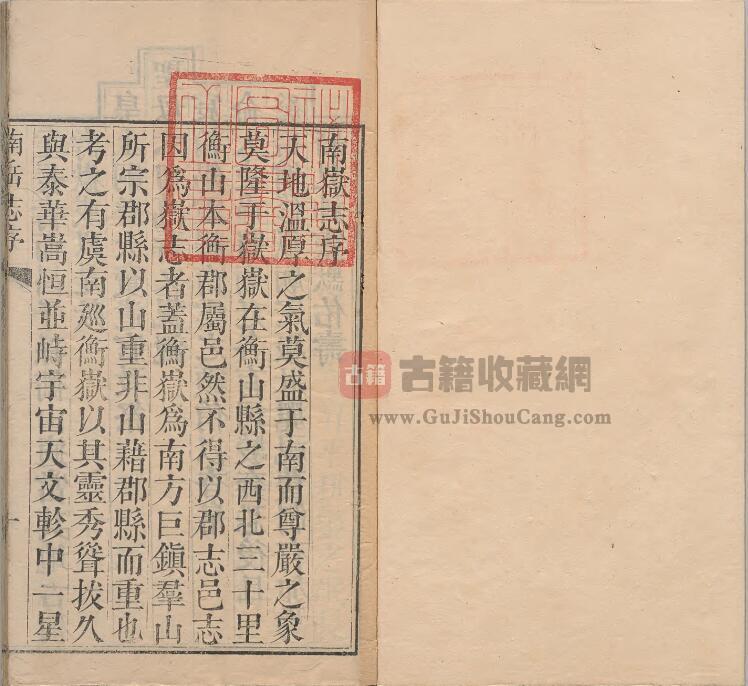 南嶽志序
天地溫厚之氣莫盛于南而尊嚴之象
莫隆于嶽嶽在衡山縣之西北三十里
衡山本衡郡屬邑然不得以郡志邑志
因爲嶽志者蓋衡嶽爲南方巨鎮羣山
所宗郡縣以山重非山藉郡縣而重也
考之有虞南廵衡嶽以其靈秀聳拔久
與泰華嵩恒並峙宇宙天文軫中一星
南岳志序
一
古籍
古籍收藏網
www.GuJiShouCang.com